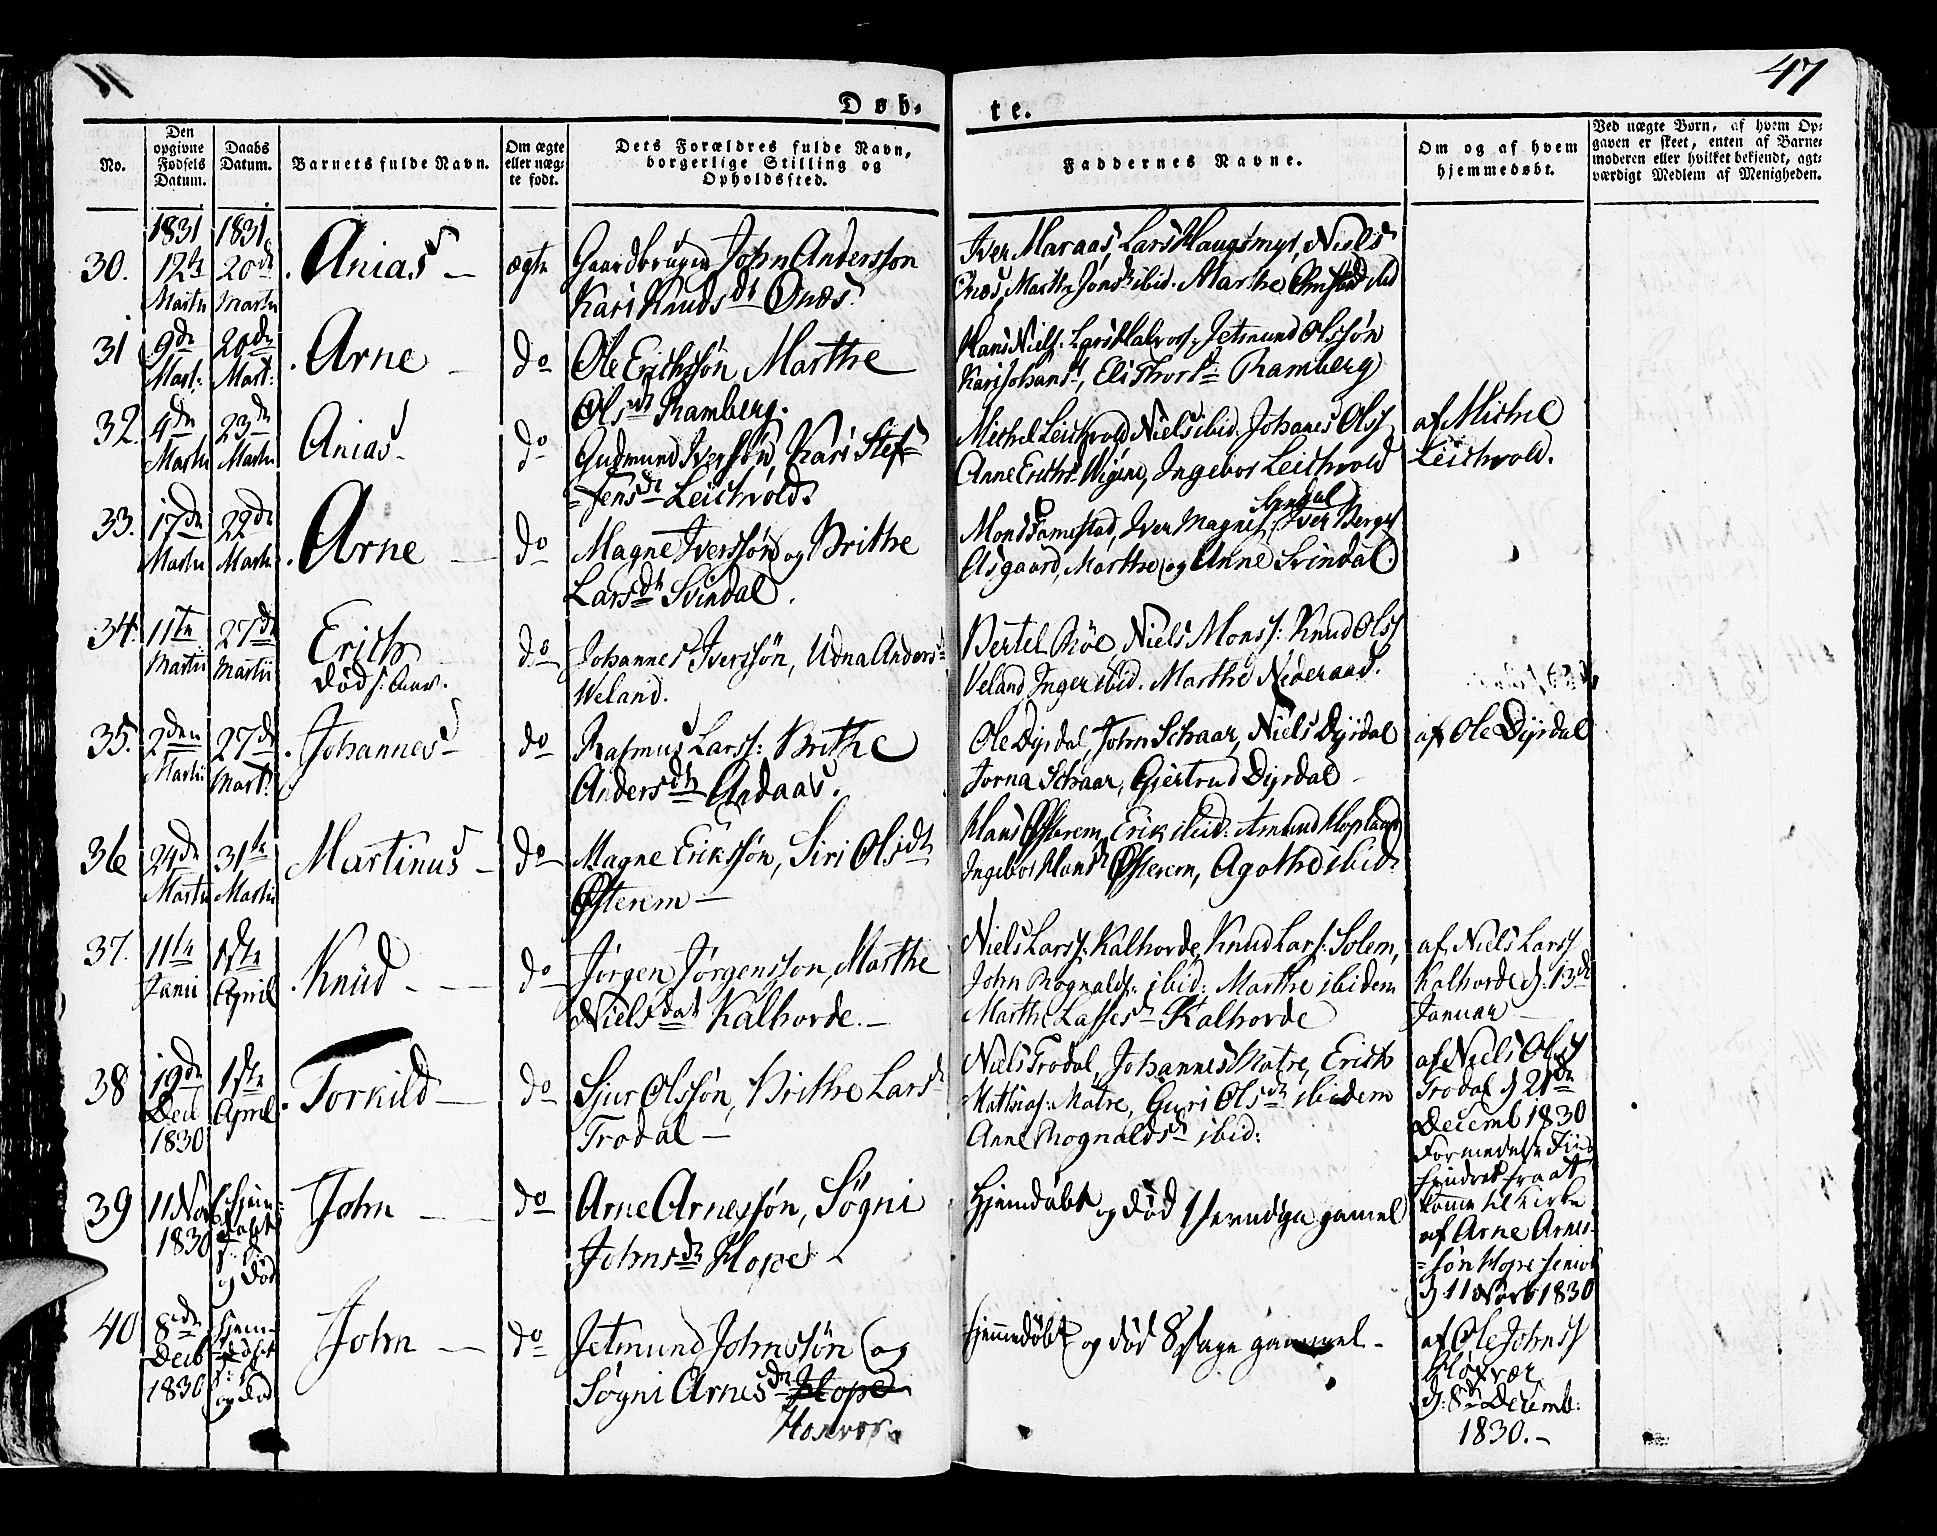 47
Døb-
te.
No.
Den opgivne Fødsels Datum.
Daabs Datum.
Barnets fulde Navn.
Om ægte eller uæg-te født.
Dets Forældres fulde Navn, borgerlige Stilling og Opholdssted.
Faddernes Navne.
Om og af hvem hjemmedøbt.
Ved uægte Børn, af hvem Op-
gaven er skeet, enten af Barne-
moderen eller hvilket bekjendt, agt-
værdigt Medlem af Menigheden.
1831 1831
30. 12te Martii 20de Martii Anias ægte
Gaardbruger John Anderssøn
Kari Knudsdt Onæs.
Iver Maraas, Lars Haugsmyr, Niels
Onæs, Marthe Jonsdt ibid. Marthe
31 9de Mart: 20de Mart: Arne do
Ole Erichssøn Marthe
Olsdt Ramberg.
Hans Niels: Lars Halvors: Jetmund Olssøn
Kari Johansdt, Eli Thorsdt Ramberg
32. 4de Martii 23de Martii Anias do
Gudmund Iverssøn, Kari Stef-
fensdt Leichvold.
Michel Leichvold Niels ibid. Johanes Ols:
Anne Erichsdt Øigene, Ingebor Leichvold
af Michel
Leichvold.
33. 17de Martii 22de Martii Arne do
Magne Iverssøn og Brithe
Larsdt Svindal.
Svindal
Mons Famestad, Iver Magnes: Iver Berge
Aasgaard, Marthe og Anne Svindal.
34. 11te Martii 27de Martii Erich
Død s: Aar.
do
Johannes Iverssøn, Udna Andersdt
Veland.
Bertel Røe, Niels Monss: Knud Ols:
Veland Inger ibid. Marthe Nederaas.
35. 2den Martii 27de Mart: Johannes do
Rasmus Larss: Brithe
Andersdt Andaas.
Ole Dyrdal, John Schaar, Niels Dyrdal
Jorna Schaar, Giertrud Dyrdal
af Ole Dyrdal
36 24de Martii 31te Martii Martinus do
Magne Erikssøn, Siri Olsdt
Østerem
Hans Østerem, Erik ibid: Amund Hopland
Ingebor Hansdt Østerem, Agathe ibid:
37. 11te Janii 1ste April Knud do
Jørgen Jørgenssøn, Marthe
Nielsdat Kalhovde.
Niels Larss: Kalhovde, Knud Lars: Solem,
John Rognalds: ibid: Marthe ibidem
Marthe Lassesdt Kalhovde
af Niels Larss
Kalhovde d: 13de
Januar
38 19de Dec 1830 1ste April Torkild do
Sjur Olssøn, Brithe Larsdt
Trodal
Niels Trodal, Johannes Matre, Erich
Mathias: Matre, Guri Olsdt ibidem
Anne Rognaldsdt ibid:
af Niels Ols:
Trodal d 21de
Decemb 1830
formedelst Fiid
hindret fra at
komme til Kirke
39 11 Nov 1830 hjem-døbt og død John do
Arne Arnessøn, Søgni
Johnsdt Hope
Hjemdøbt og død 1 gamel
af Arne Arnes-
søn Hope senior
d. 11 Novb 1830
40 8de Decb 1830 hjem-døbt og død John do
Jetmund Johnssøn og
Søgni Arnesdt Hope
Hosevær.
hjemmedøbt og død 8 Dage gammel.
af Ole Johnss
Hosvær
d: 8de Decemb:
1830.